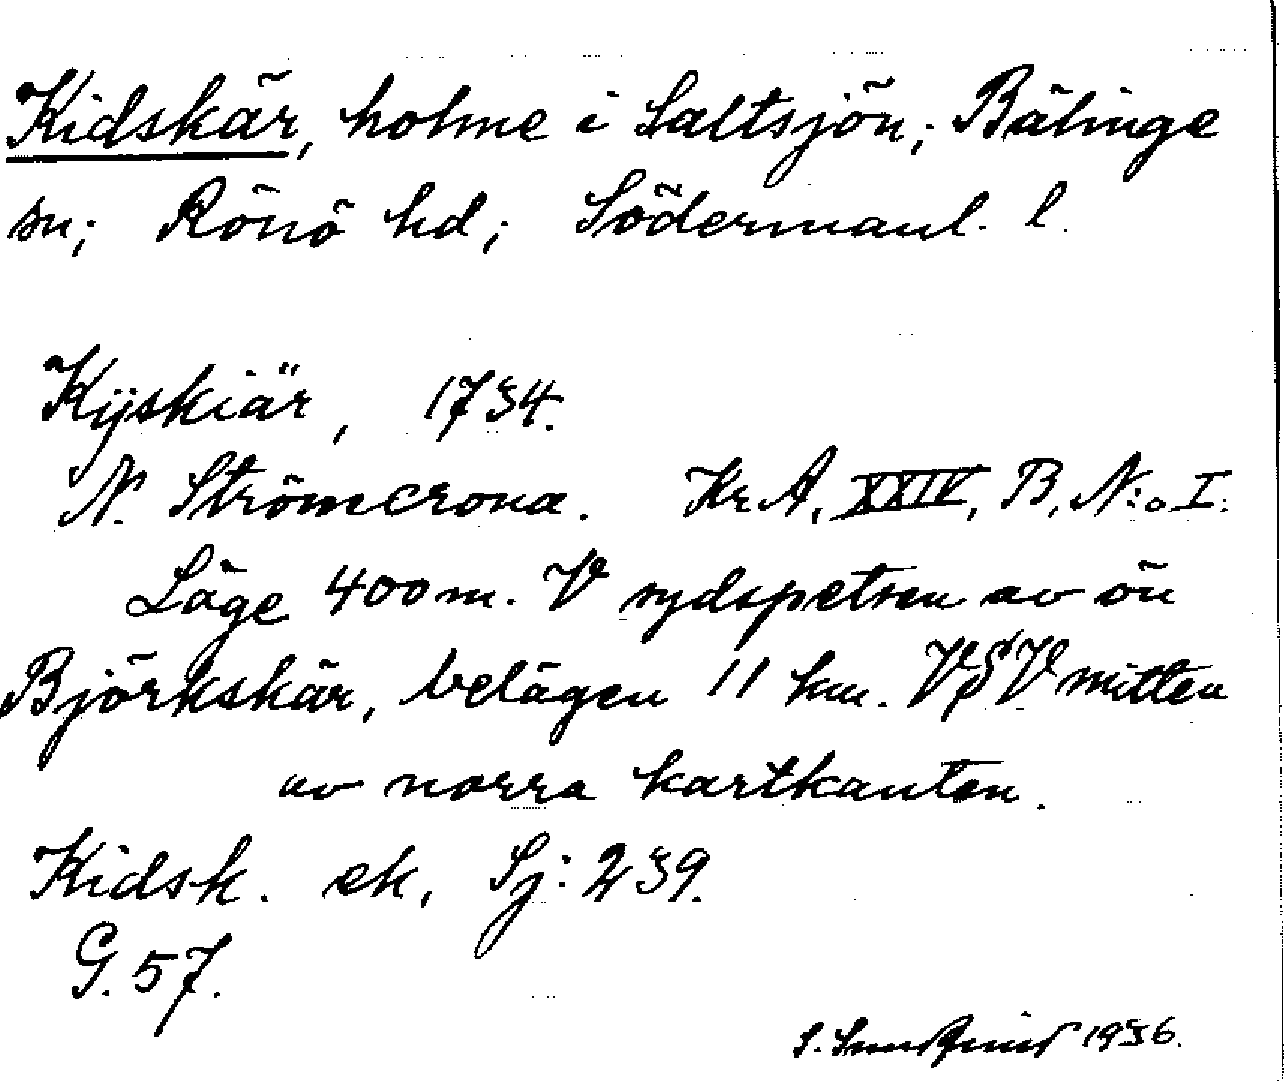 Kidskär, holme i Saltsjön; Bälinge
sn; Rönö hd; Södermanl. l.
Kijskiär, 1734.
N. Strömcrona. Kr.A. XXIV, B, N:o I.
Läge 400 m. V sydspetsen av ön
Björkskär, belägen 11 km. VSV mitten
av norra kartkanten.
Kidsk. ek, Sj: 239.
G. 57.
S. 1936.